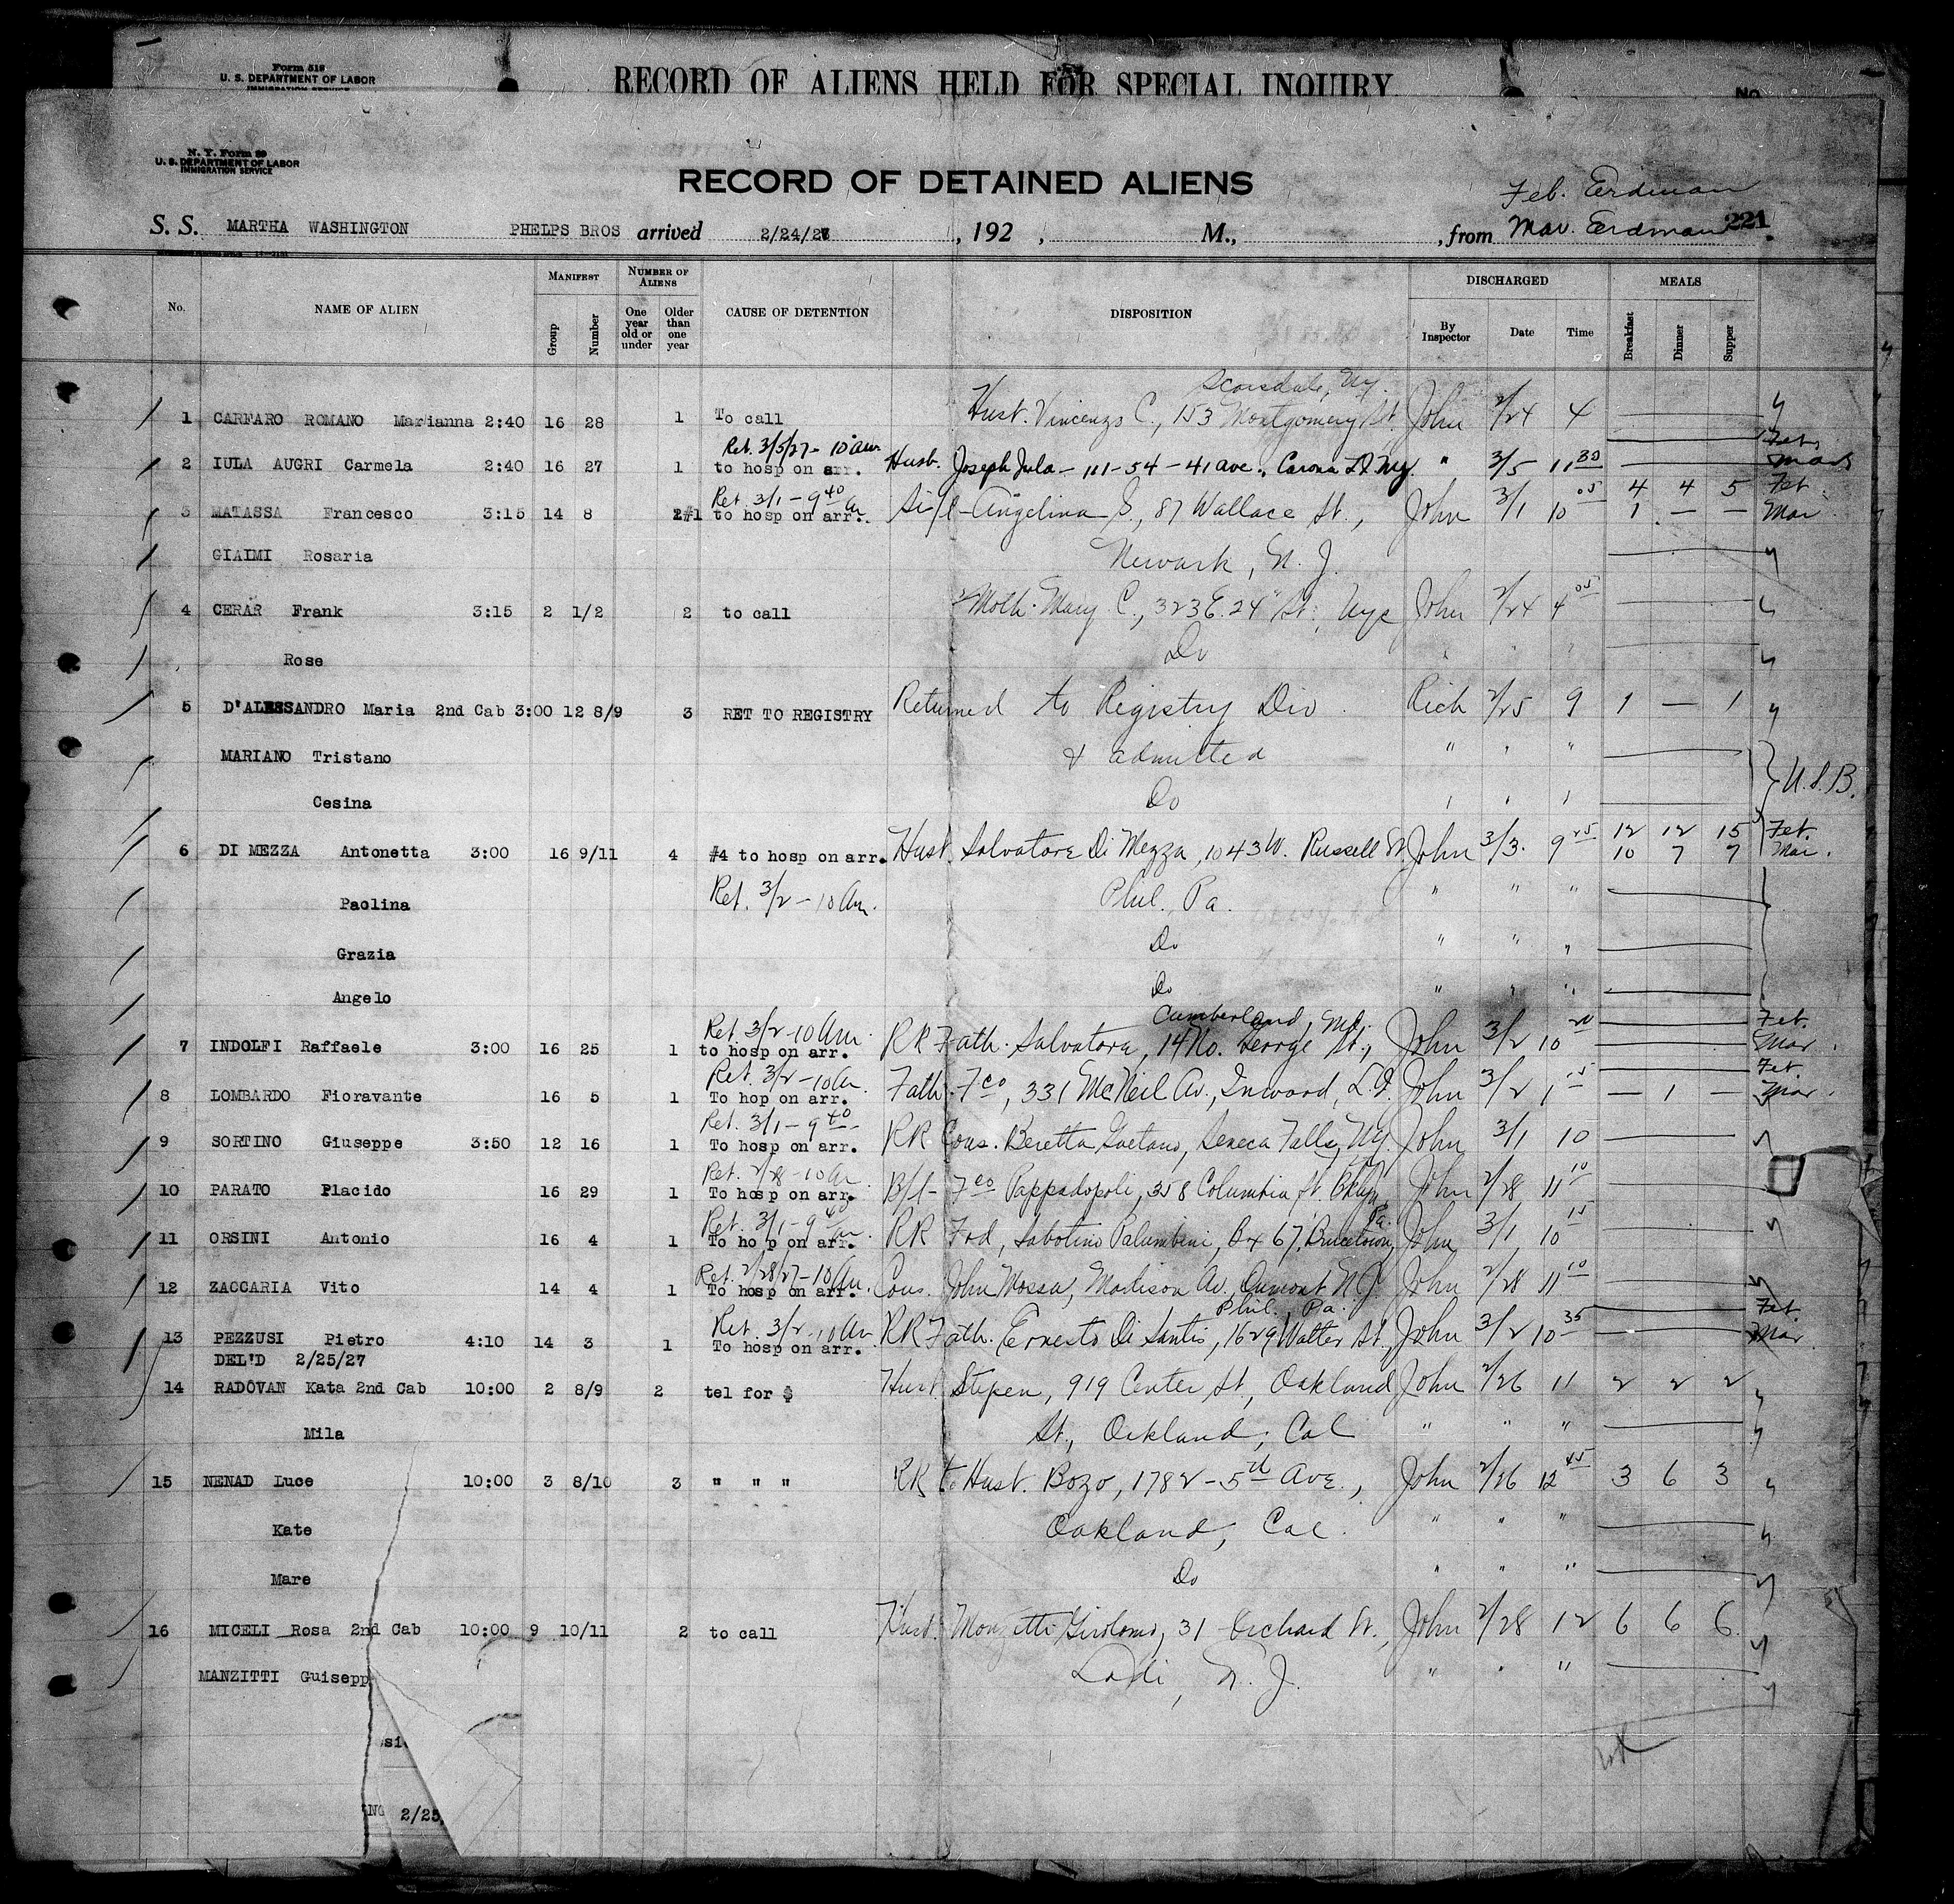 Form 518
U. S. DEPARTMENT OF LABOR
IMMIGRATION SERVICE
RECORD OF ALIENS HELD FOR SPECIAL INQUIRY
No
N. Y. Form 89
U. S. DEPARTMENT OF LABOR
IMMIGRATION SERVICE
RECORD OF DETAINED ALIENS
Feb. Erdman
S. S. MARTHA WASHINGTON PHELPS BROS arrived 2/24/27, 192 , M., , from Mar. Erdman 221
No. NAME OF ALIEN MANIFEST Group Number NUMBER OF ALIENS One year old or under Older than one year CAUSE OF DETENTION DISPOSITION DISCHARGED By Inspector Date Time MEALS Breakfast Dinner Supper
Scarsdale, Ny.
1 CARFARO ROMANO Marianna 2:40 16 28 1 To call Hust. Vincenzo C., 153 Montgomery St. John 2/24 4
Ret. 3/5/27 - 10 am Feb
2 IULA AUGRI Carmela 2:40 16 27 1 to hosp on arr. Husb. Joseph Iula - 111-54-41 ave., Corona L.I. Ny. " 3/5 11 30 Mar
Ret. 3/1 - 9 40 am 4 4 5 Feb.
3 MATASSA Francesco 3:15 14 8 2#1 to hosp on arr. Si/l - Angelina S., 87 Wallace St., John 3/1 10 05 1 — — Mar
GIAIMI Rosaria Newark, N. J.
4 CERAR Frank 3:15 2 1/2 2 to call Moth. Mary C., 323 E. 24" St., Nyc John 2/24 4 05
Rose Do " " "
5 D'ALESSANDRO Maria 2nd Cab 3:00 12 8/9 3 RET TO REGISTRY Returned to Registry Div. Rich 2/25 9 1 — 1
MARIANO Tristano & admitted " " "
U.S.B.
Cesina Do " " "
12 12 15 Feb.
6 DI MEZZA Antonetta 3:00 16 9/11 4 #4 to hosp on arr. Hust. Salvatore Di Mezza, 1043 W. Russell St. John 3/3. 9 25 10 7 7 Mar.
Paolina Ret. 3/2 - 10 Am. Phil. Pa. " " "
Grazia Do " " "
Angelo Do " " "
Ret. 3/2 - 10 Am. Cumberland, Md. Feb.
7 INDOLFI Raffaele 3:00 16 25 1 to hosp on arr. RR Fath. Salvatora, 14 No. George St., John 3/2 10 20 Mar.
Ret. 3/2 - 10 Am. Feb.
8 LOMBARDO Fioravante 16 5 1 To hop on arr. Fath. Fco, 331 McNeil Av., Inwood, L.I. John 3/2 1 15 — 1 — Mar.
Ret. 3/1 - 9 40
9 SORTINO Giuseppe 3:50 12 16 1 To hosp on arr. RR Cous. Beretta Gaetano, Seneca Falls, Ny. John 3/1 10
Ret. 2/28 - 10 Am.
10 PARATO Placido 16 29 1 To hosp on arr. B/l - Fco Pappadopoli, 358 Columbia St. Bklyn, John 2/28 11 10
Ret. 3/1 - 9 40 am. Pa.
11 ORSINI Antonio 16 4 1 To ho p on arr. RR Frd, Sabotino Palumbini, Bx 67, John 3/1, 10 15
Ret. 2/28/27 - 10 Am.
12 ZACCARIA Vito 14 4 1 To hosp on arr. Cous. John Mossa, Madison Av., Dumont N.J. John 2/28 11 10
Ret. 3/2 - 10 Am Phil., Pa. Feb
13 PEZZUSI Pietro 4:10 14 3 1 To hosp on arr. RR Fath. Ernesto Di Santis, 1629 Walter St., John 3/2 10 35 Mar
DEL'D 2/25/27
14 RADOVAN Kata 2nd Cab 10:00 2 8/9 2 tel for $ Hust. Stepen, 919 Center St., Oakland John 2/26 11 2 2 2
Mila St., Oakland, Cal " " "
15 NENAD Luce 10:00 3 8/10 3 " " " RR to Hust. Bozo, 1782 - 5th Ave., John 2/26 12 45 3 6 3
Kate Oakland, Cal. " " "
Mare Do " " "
16 MICELI Rosa 2nd Cab 10:00 9 10/11 2 to call Hust. Monzetti Girolomo, 31 Orchard St., John 2/28 12 6 6 6
MANZITTI Guisepp Lodi, N. J. " " "
2/25